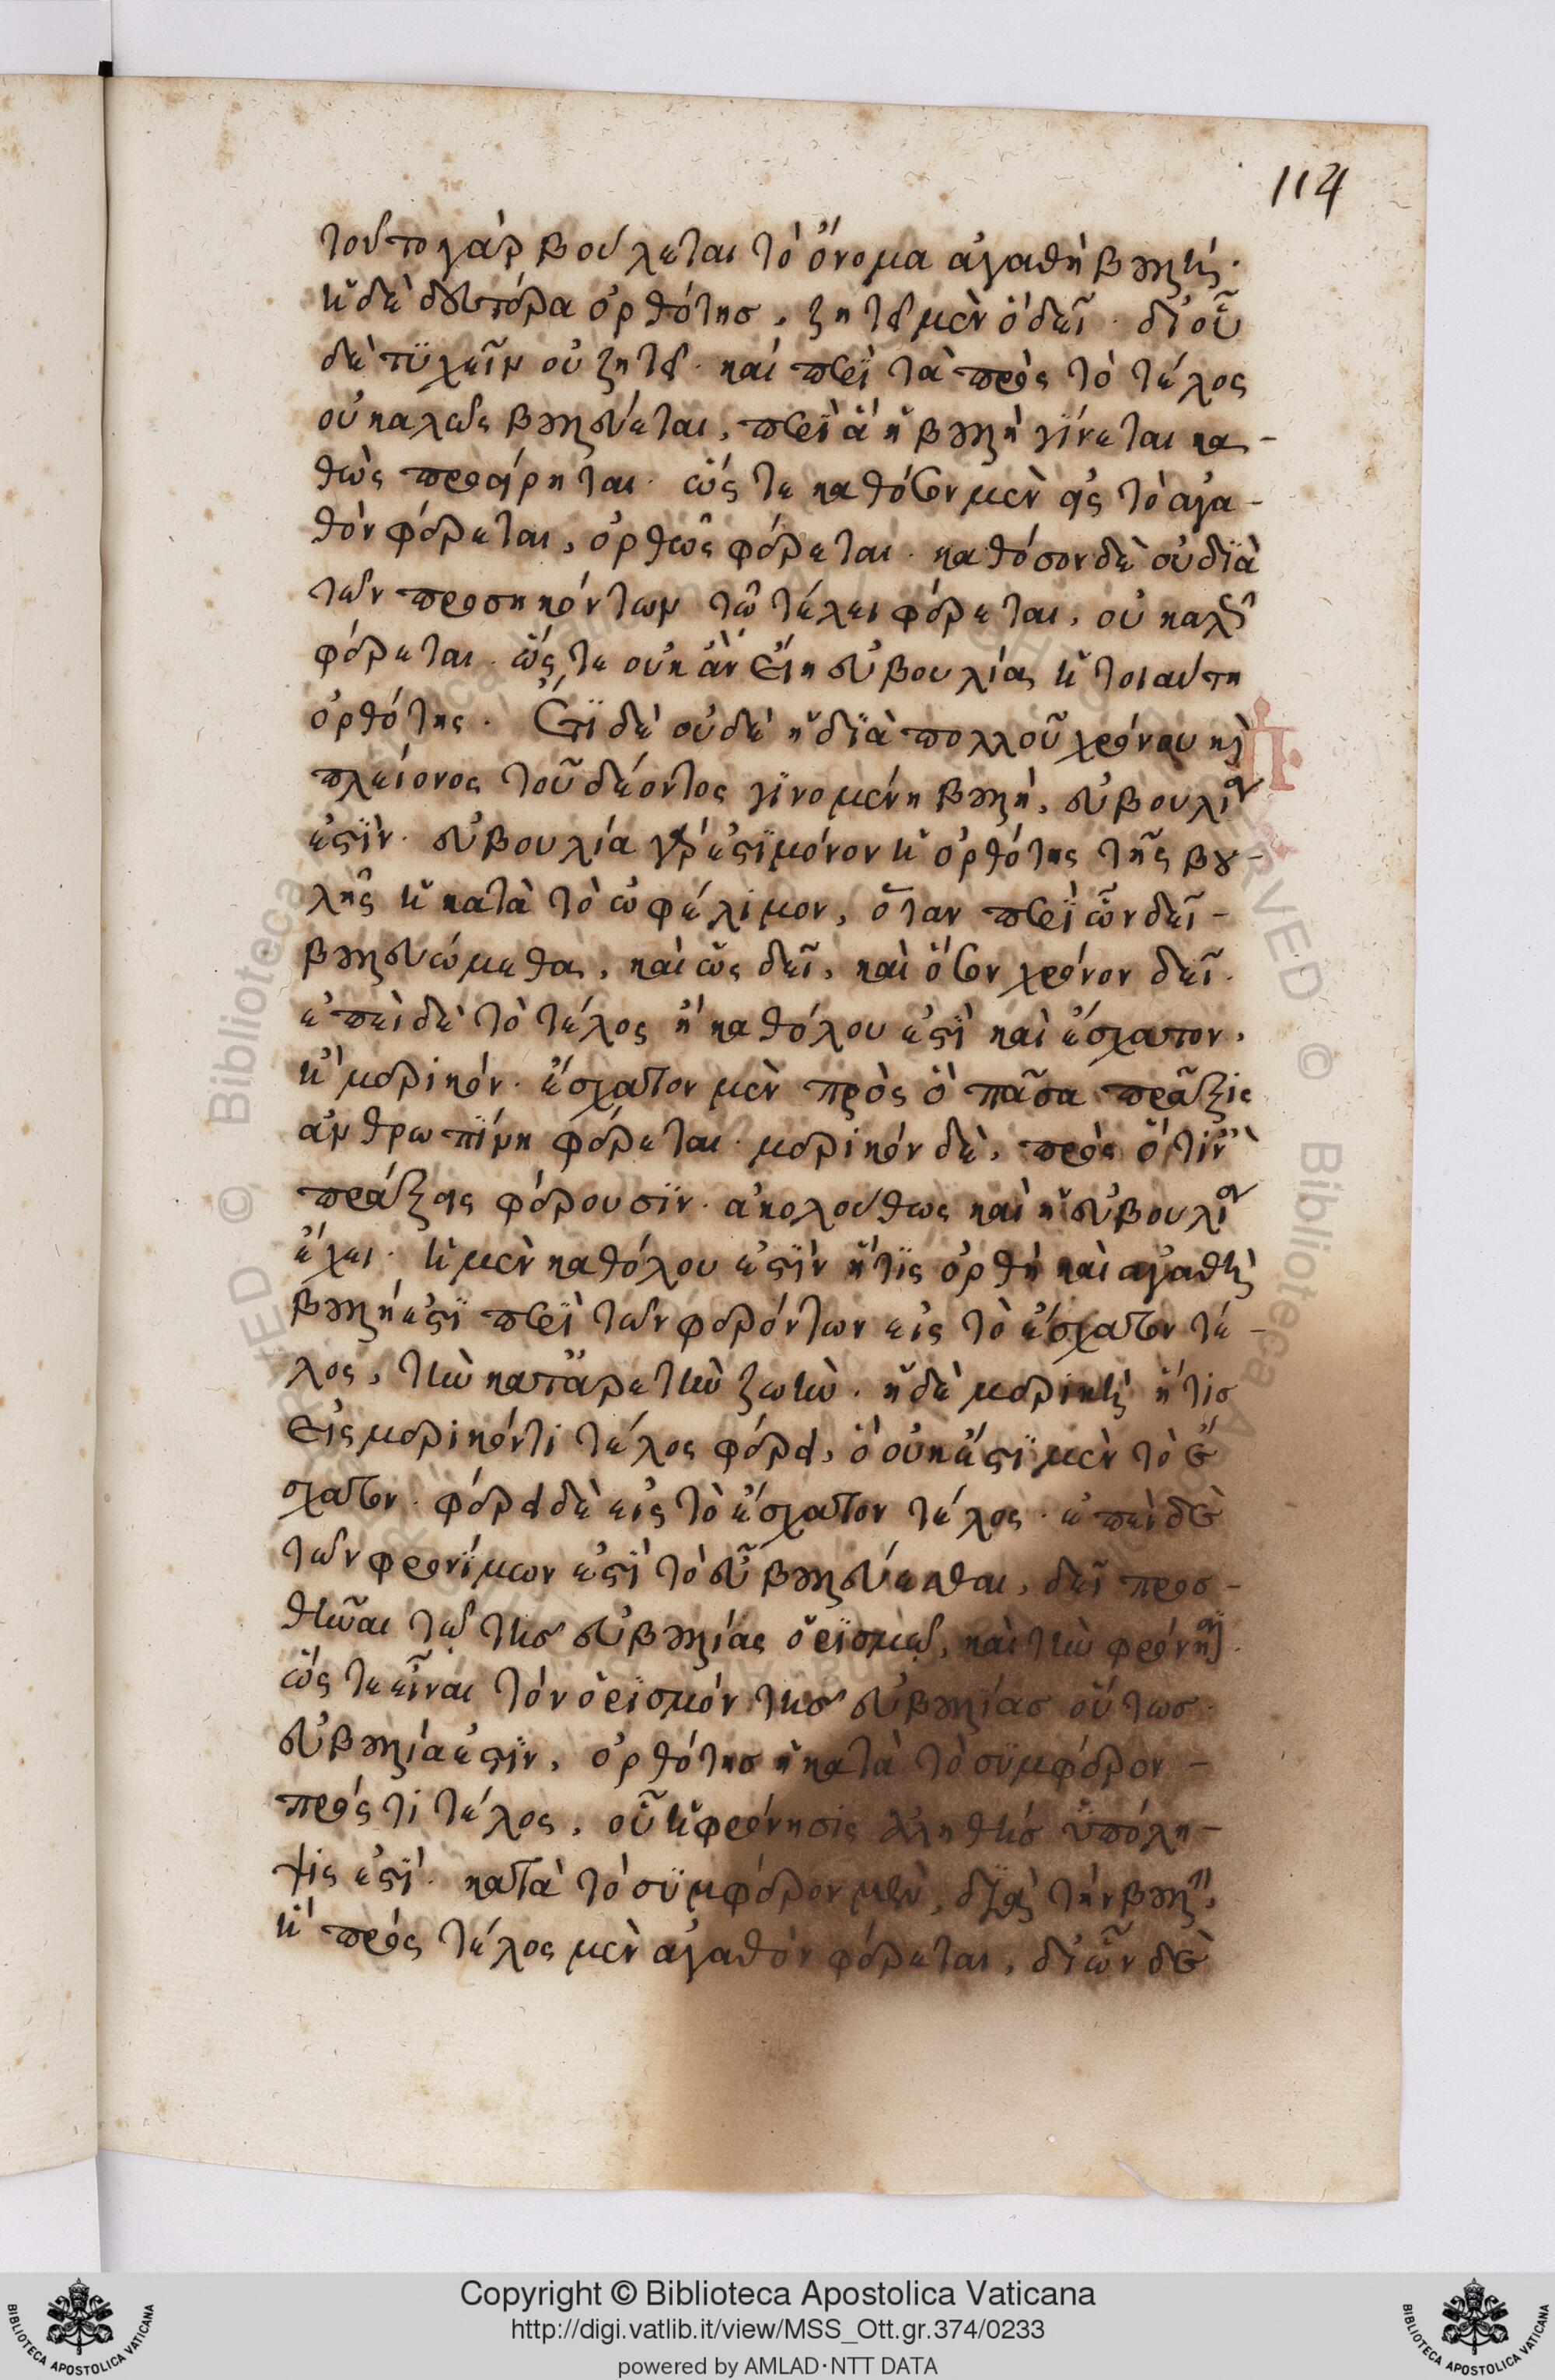 114
τοῦτο γὰρ βούλεται τὸ ὄνομα ἀγαθὴ βουλή·
ἡ δὲ δευτέρα ὀρθότης, ζητεῖ μὲν ὃ δεῖ· δι' οὗ
δὲ τυχεῖν οὐ ζητεῖ· καὶ περὶ τὰ πρὸς τὸ τέλος
οὐ καλῶς βουλεύεται, περὶ ἃ ἡ βουλὴ γίνεται κα-
θὼς προείρηται· ὥςτε καθόσον μὲν εἰς τὸ ἀγα-
θὸν φέρεται, ὀρθῶς φέρεται· καθόσον δὲ οὐ διὰ
τῶν προσηκόντων τῶ τέλει φέρεται, οὐ καλῶς
φέρεται· ὥςτε οὐκ ἂν εἴη εὐβουλία ἡ τοιαύτη
ὀρθότης. Ἔτι δὲ οὐδὲ ἡ διὰ πολλοῦ χρόνου καὶ
πλείονος τοῦ δέοντος γινομένη βουλή, εὐβουλία
ἐστίν· εὐβουλία γάρ ἐστι μόνον ἡ ὀρθότης τῆς βου-
λῆς ἡ κατὰ τὸ ὠφέλιμον, ὅταν περὶ ὧν δεῖ-
βουλευώμεθα, καὶ ὡς δεῖ, καὶ ὅσον χρόνον δεῖ.
ἐπεὶ δὲ τὸ τέλος ἢ καθόλου ἐστὶ καὶ ἔσχατον,
ἢ μερικόν· ἔσχατον μὲν πρὸς ὃ πᾶσα πρᾶξις
ἀνθρωπίνη φέρεται· μερικὸν δὲ, πρὸς ὅ τινες
πράξεις φέρουσιν· ἀκολούθως καὶ ἡ εὐβουλία
ἔχει· ἡ μὲν καθόλου ἐστὶν ἥτις ὀρθὴ καὶ ἀγαθὴ
βουλή ἐστι περὶ τῶν φερόντων εἰς τὸ ἔσχατον τέ-
λος, τὴν κατ' ἀρετὴν ζωήν· ἡ δὲ μερικὴ ἥτις
εἰς μερικόν τι τέλος φέρει, ὃ οὐκ ἔστι μὲν τὸ ἔ
σχατον· φέρει δὲ εἰς τὸ ἔσχατον τέλος· ἐπεὶ δὲ
τῶν φρονίμων ἐστὶ τὸ εὖ βουλεύεσθαι, δεῖ προσ-
θεῖναι τῷ τῆς εὐβουλίας ὁρισμῷ, καὶ τὴν φρόνησιν.
ὥςτε εἶναι τὸν ὁρισμόν τῆς εὐβουλίας οὕτως·
εὐβουλία ἐστὶν, ὀρθότης ἡ κατὰ τὸ συμφέρον-
πρός τι τέλος, οὗ ἡ φρόνησις ἀληθής ὑπόλη-
ψις ἐστί· κατὰ τὸ συμφέρον μὲν, διὰ τὴν βουλὴν,
ἣ πρὸς τέλος μὲν ἀγαθὸν φέρεται, δι' ὧν δὲ
Copyright © Biblioteca Apostolica Vaticana
http://digi.vatlib.it/view/MSS_Ott.gr.374/0233
powered by AMLAD·NTT DATA
BIBLIOTECA APOSTOLICA VATICANA
BIBLIOTECA APOSTOLICA VATICANA